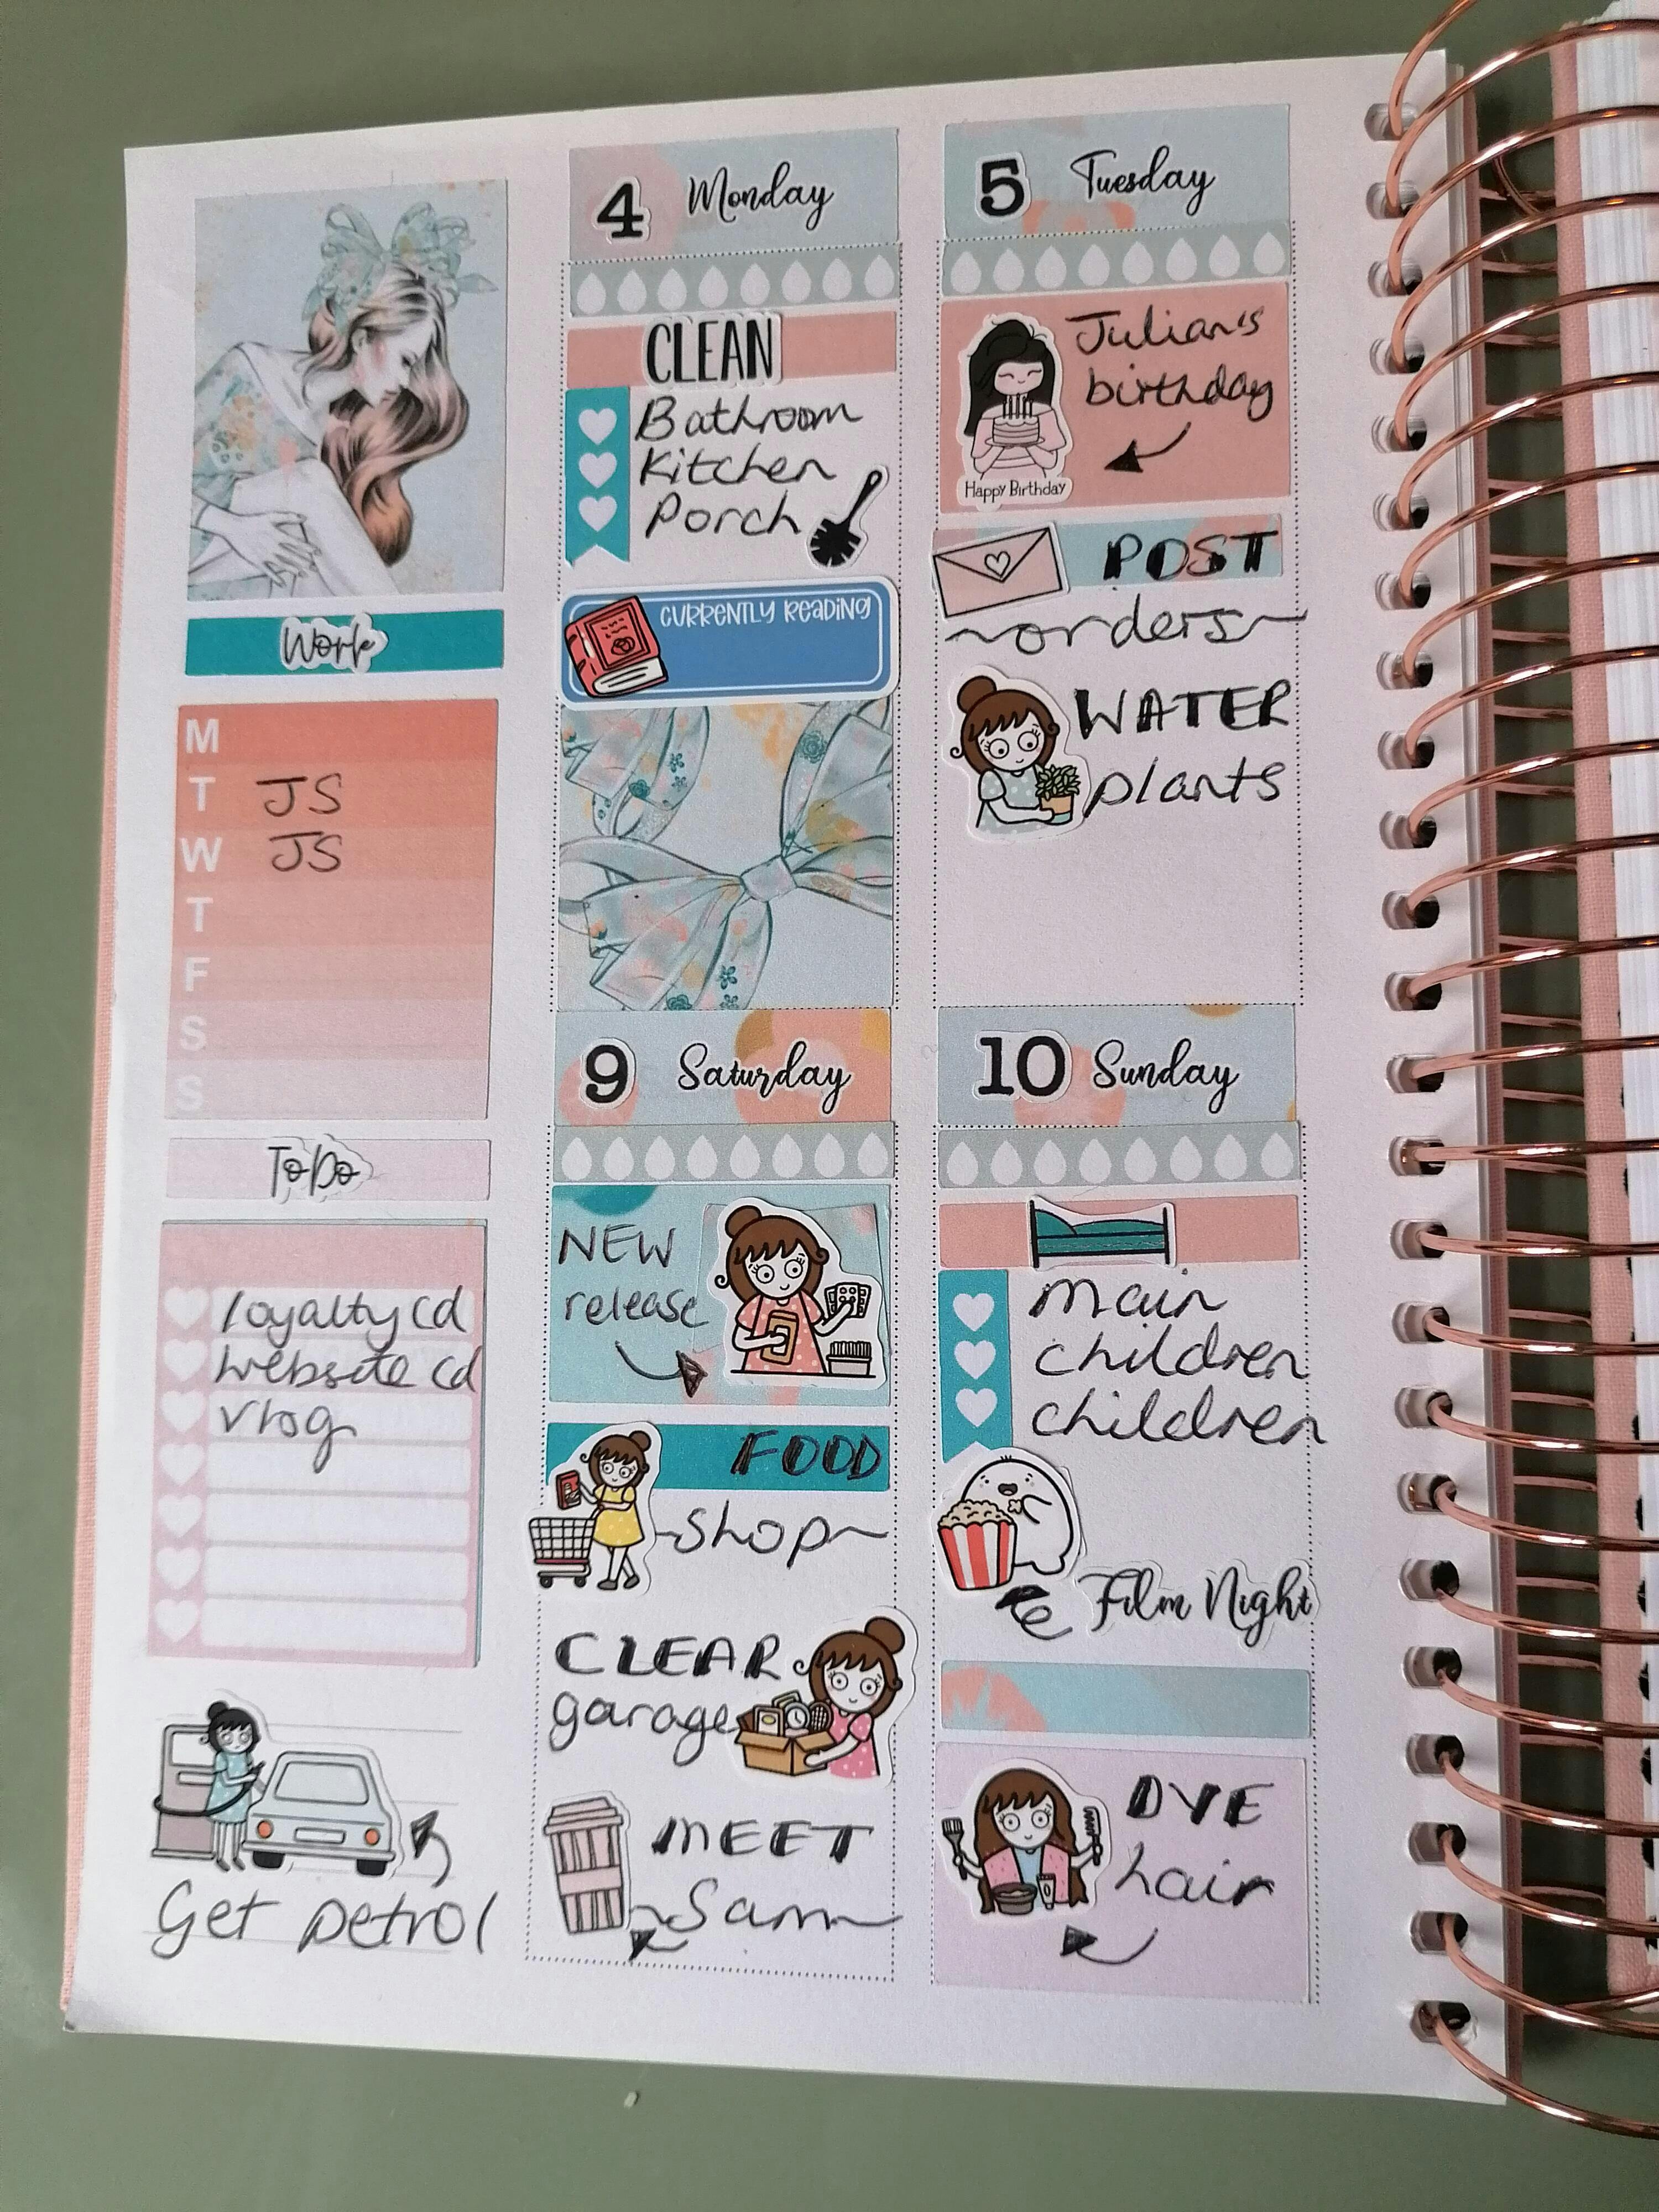 Work
M
T JS
W JS
T
F
S
S
ToDo
loyalty cd
website cd
vlog
Get petrol
4 Monday
CLEAN
Bathroom
Kitchen
Porch
CURRENTLY READING
5 Tuesday
Julian's
birthday
Happy Birthday
POST
~orders~
WATER
plants
9 Saturday
NEW
release
FOOD
~shop~
CLEAR
garage
MEET
~Sam~
10 Sunday
main
children
children
Film Night
DYE
hair